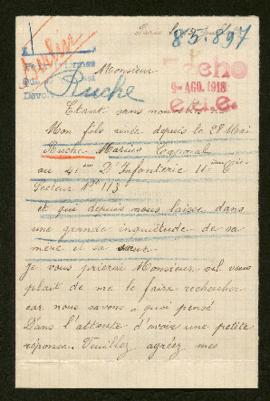 Paris le
85.897
Monsieur
echo
Ruche
9 AGO. 1918
Étant sans
Mon fils depuis le 28 Mai
Ruche Marius Caporal
au 41ème D'Infanterie 11ème Cie
Secteur Nal 113
et qui depuis nous laisse dans
une grande inquiétude de sa
mère et sa sœur
Je vous prierai Monsieur si vous
plait de me le faire rechercher
car nous savons a quoi pensé
Dans l'attente d'avoir une petite
réponse. Veuillez agréez mes